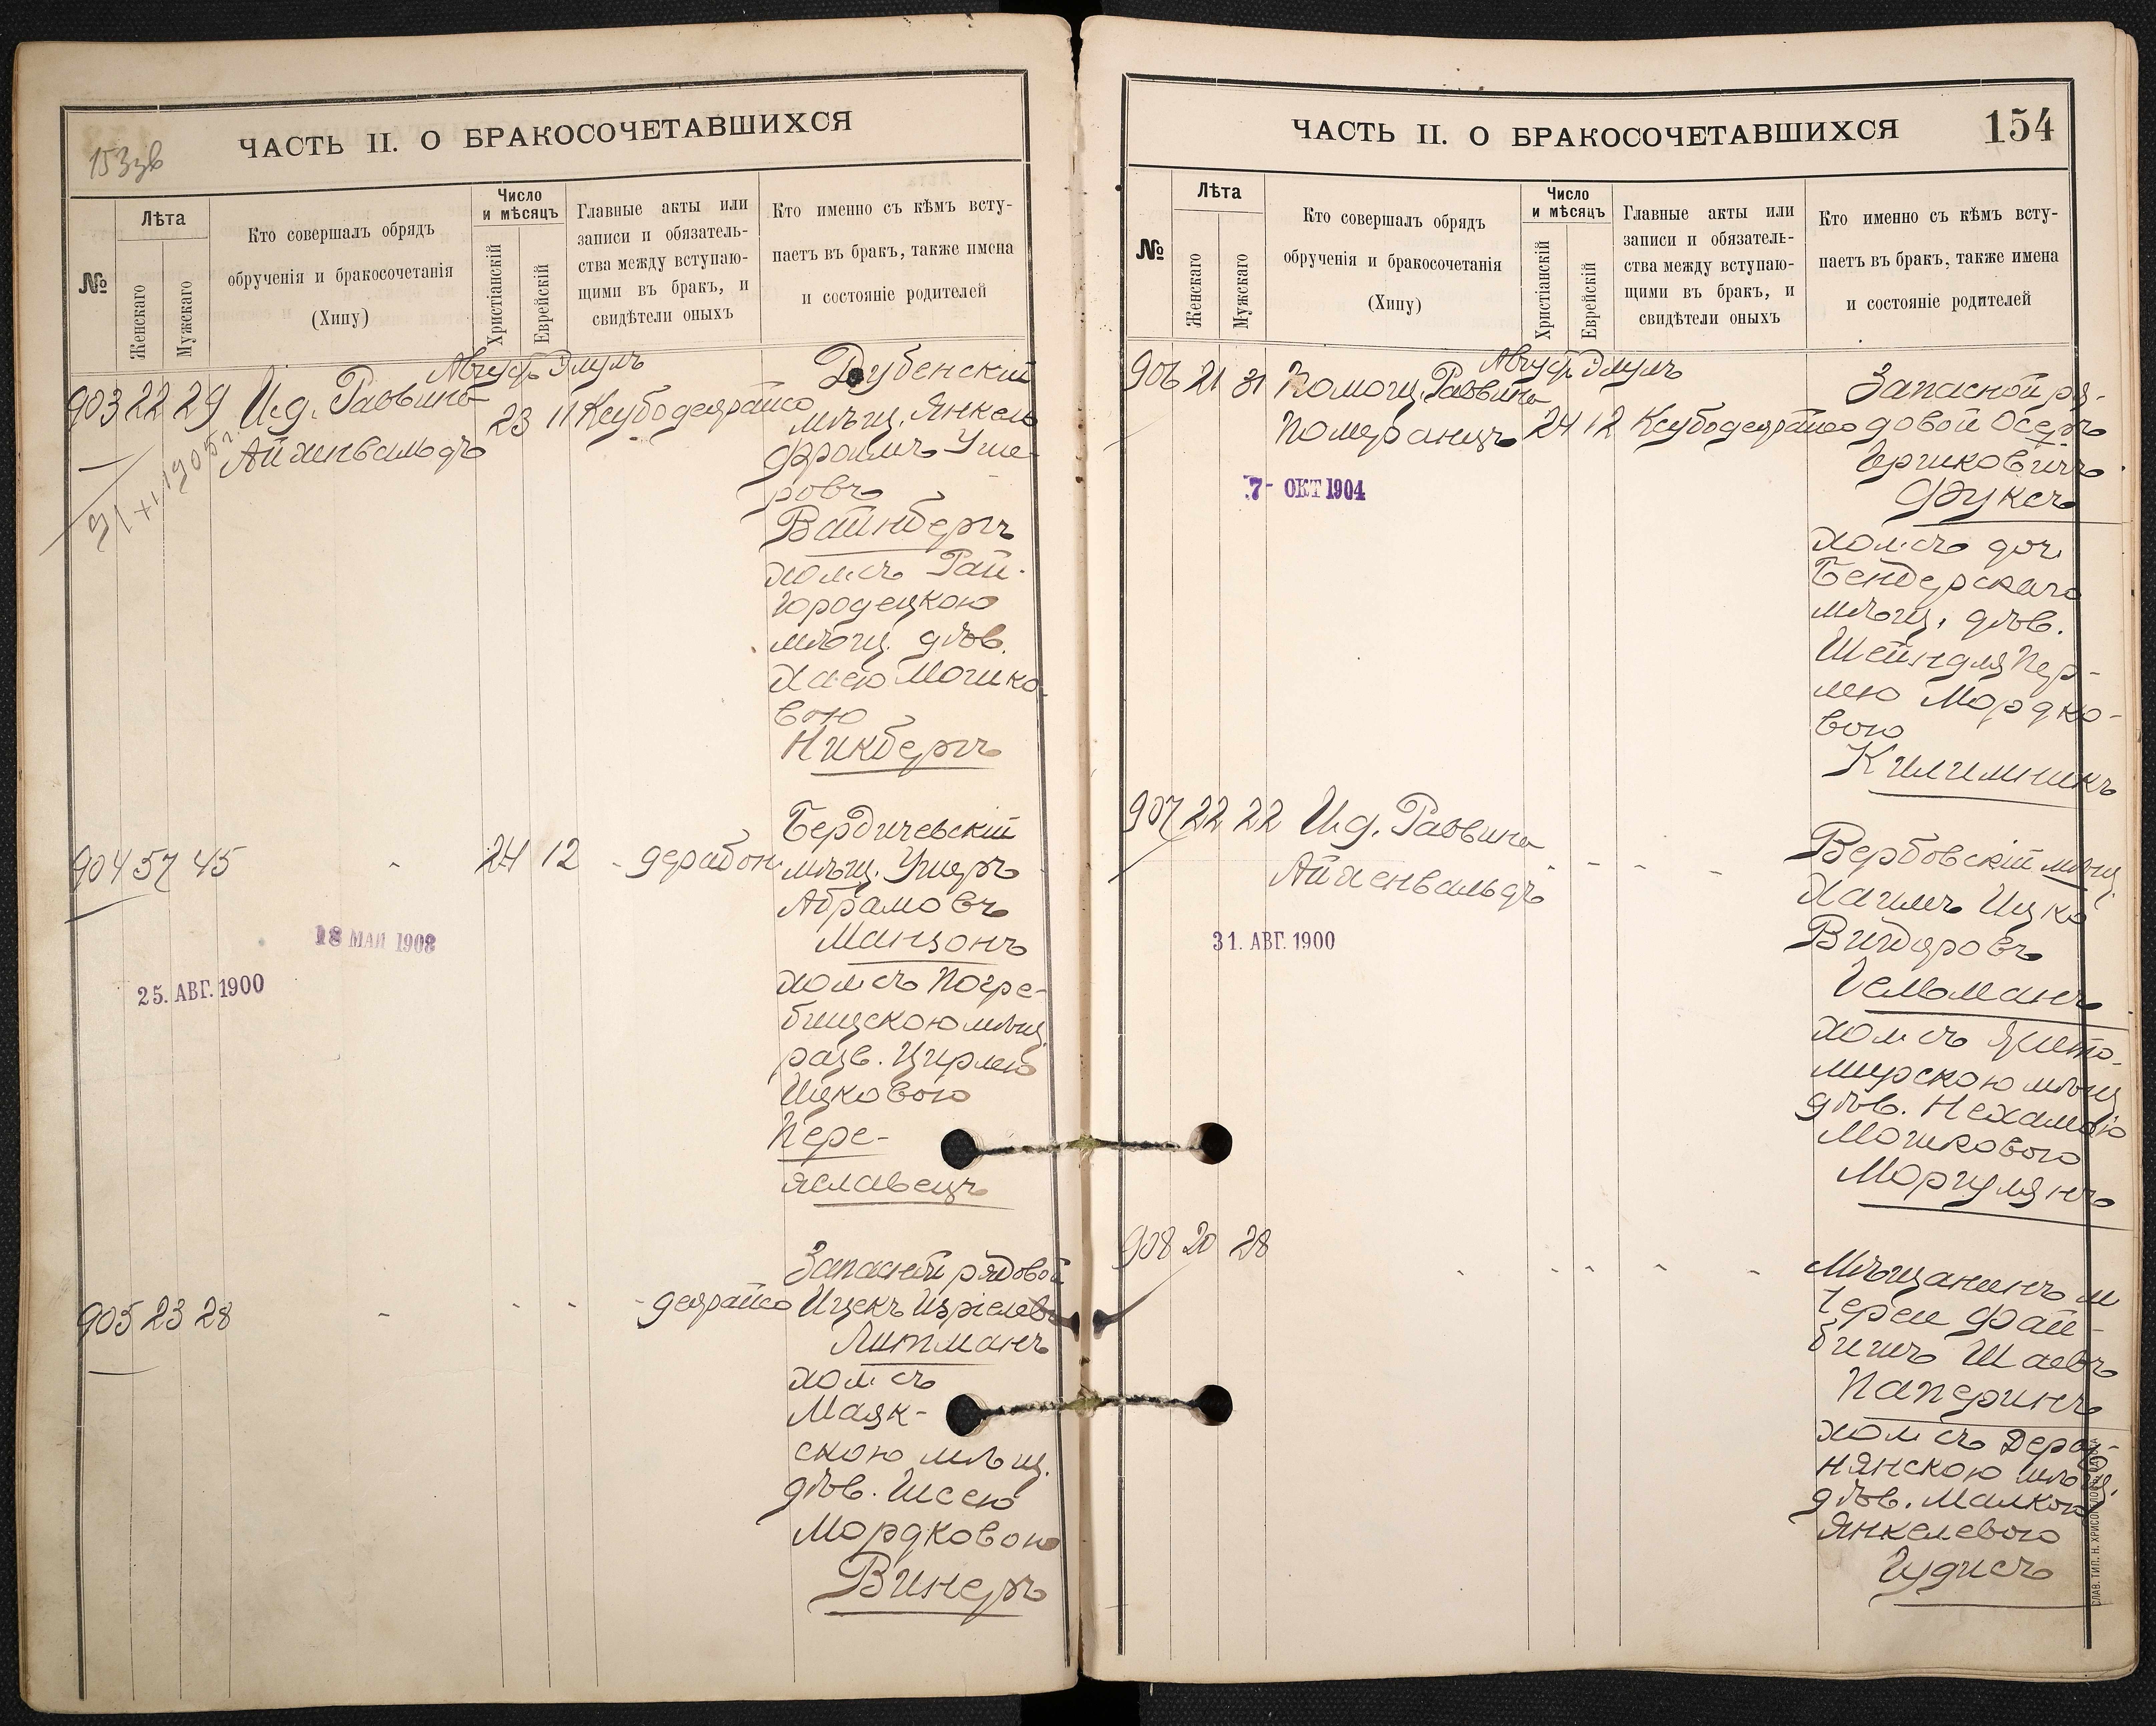 153 зв
ЧАСТЬ II. О БРАКОСОЧЕТАВШИХСЯ
№
Лѣта
Женскаго
Мужскаго
Кто совершалъ обрядъ
обрученія и бракосочетанія
(Хипу)
Число
и мѣсяцъ
Христіанскій
Еврейскій
Главные акты или
записи и обязатель-
ства между вступаю-
щими въ бракъ, и
свидѣтели оныхъ
Кто именно съ кѣмъ всту-
паетъ въ бракъ, также имена
и состояніе родителей
Август Элулъ
903 22 29 И.д. Раввина 23 11
Айхенвальдъ
Дубенскій
мѣщ. Янкель
Фроимъ Уше-
ровъ
Вайнбергъ
хол. съ Рай-
городецкою
мѣщ. дѣв.
Хаею Мошко-
вою
Никбергъ
904 57 45 - 24 12 -
Бердичевскій
мѣщ. Ушеръ
Абрамовъ
Манзонъ
хол. съ Погре-
бищскою мѣщ.
разв. Цирлею
Ицковою
Пере-
яславецъ
18 МАЙ 1908
25. АВГ. 1900
905 23 28 - - - -
Запасной рядовой
Ицекъ Изріелевъ
Литманъ
хол. съ
Маяк-
скою мѣщ.
дѣв. Шсею
Мордковою
Винеръ
154
ЧАСТЬ II. О БРАКОСОЧЕТАВШИХСЯ
№
Лѣта
Женскаго
Мужскаго
Кто совершалъ обрядъ
обрученія и бракосочетанія
(Хипу)
Число
и мѣсяцъ
Христіанскій
Еврейскій
Главные акты или
записи и обязатель-
ства между вступаю-
щими въ бракъ, и
свидѣтели оныхъ
Кто именно съ кѣмъ всту-
паетъ въ бракъ, также имена
и состояніе родителей
Август Элулъ
906 21 31 Помощ. Раввина
Померанцъ 24 12
7- ОКТ 1904
Запасной ря-
довой Осеръ
Гершковичъ
Фуксъ
хол. съ доч.
Бендерскаго
мѣщ. дѣв.
Шейндля Пер-
лею Мордко-
вою
Килимникъ
907 22 22 И.д. Раввина
Айхенвальдъ - - - -
31. АВГ. 1900
Вербовскій мѣщ.
Хаимъ Ицко
Видеровъ
Гельманъ
хол. съ Жито-
мирскою мѣщ.
дѣв. Нехамою
Мошковою
Моргулянъ
908 20 28 - - - - -
Мѣщанинъ м.
Череи Фай-
бишъ Шаевъ
Паперинъ
хол. съ Дераж-
нянскою мѣщ.
дѣв. Малкою
Янкелевою
Гудисъ